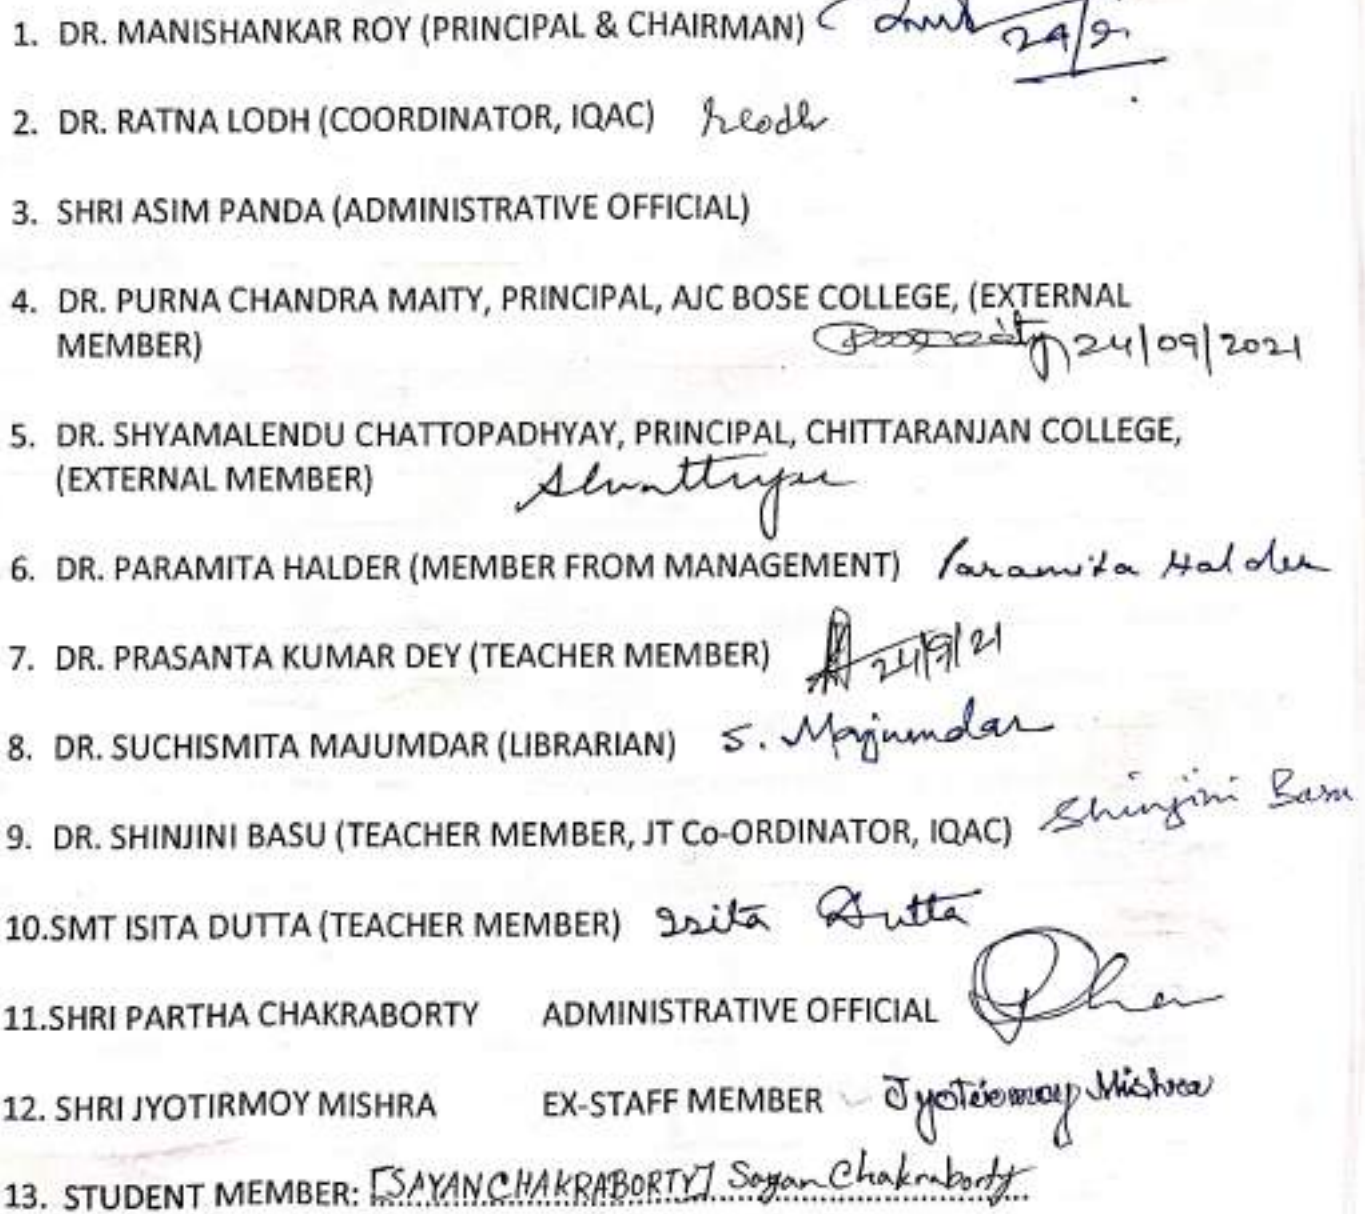 1. DR. MANISHANKAR ROY (PRINCIPAL & CHAIRMAN) 24/9.
2. DR. RATNA LODH (COORDINATOR, IQAC) RLodh
3. SHRI ASIM PANDA (ADMINISTRATIVE OFFICIAL)
4. DR. PURNA CHANDRA MAITY, PRINCIPAL, AJC BOSE COLLEGE, (EXTERNAL
MEMBER) 24/09/2021
5. DR. SHYAMALENDU CHATTOPADHYAY, PRINCIPAL, CHITTARANJAN COLLEGE,
(EXTERNAL MEMBER)
6. DR. PARAMITA HALDER (MEMBER FROM MANAGEMENT) Paramita Halder
7. DR. PRASANTA KUMAR DEY (TEACHER MEMBER) 24/9/21
8. DR. SUCHISMITA MAJUMDAR (LIBRARIAN) S. Majumdar
9. DR. SHINJINI BASU (TEACHER MEMBER, JT Co-ORDINATOR, IQAC) Shinjini Basu
10.SMT ISITA DUTTA (TEACHER MEMBER) Isita Dutta
11.SHRI PARTHA CHAKRABORTY ADMINISTRATIVE OFFICIAL
12. SHRI JYOTIRMOY MISHRA EX-STAFF MEMBER Jyotirmoy Mishra
13. STUDENT MEMBER: [SAYAN CHAKRABORTY] Sayan Chakraborty